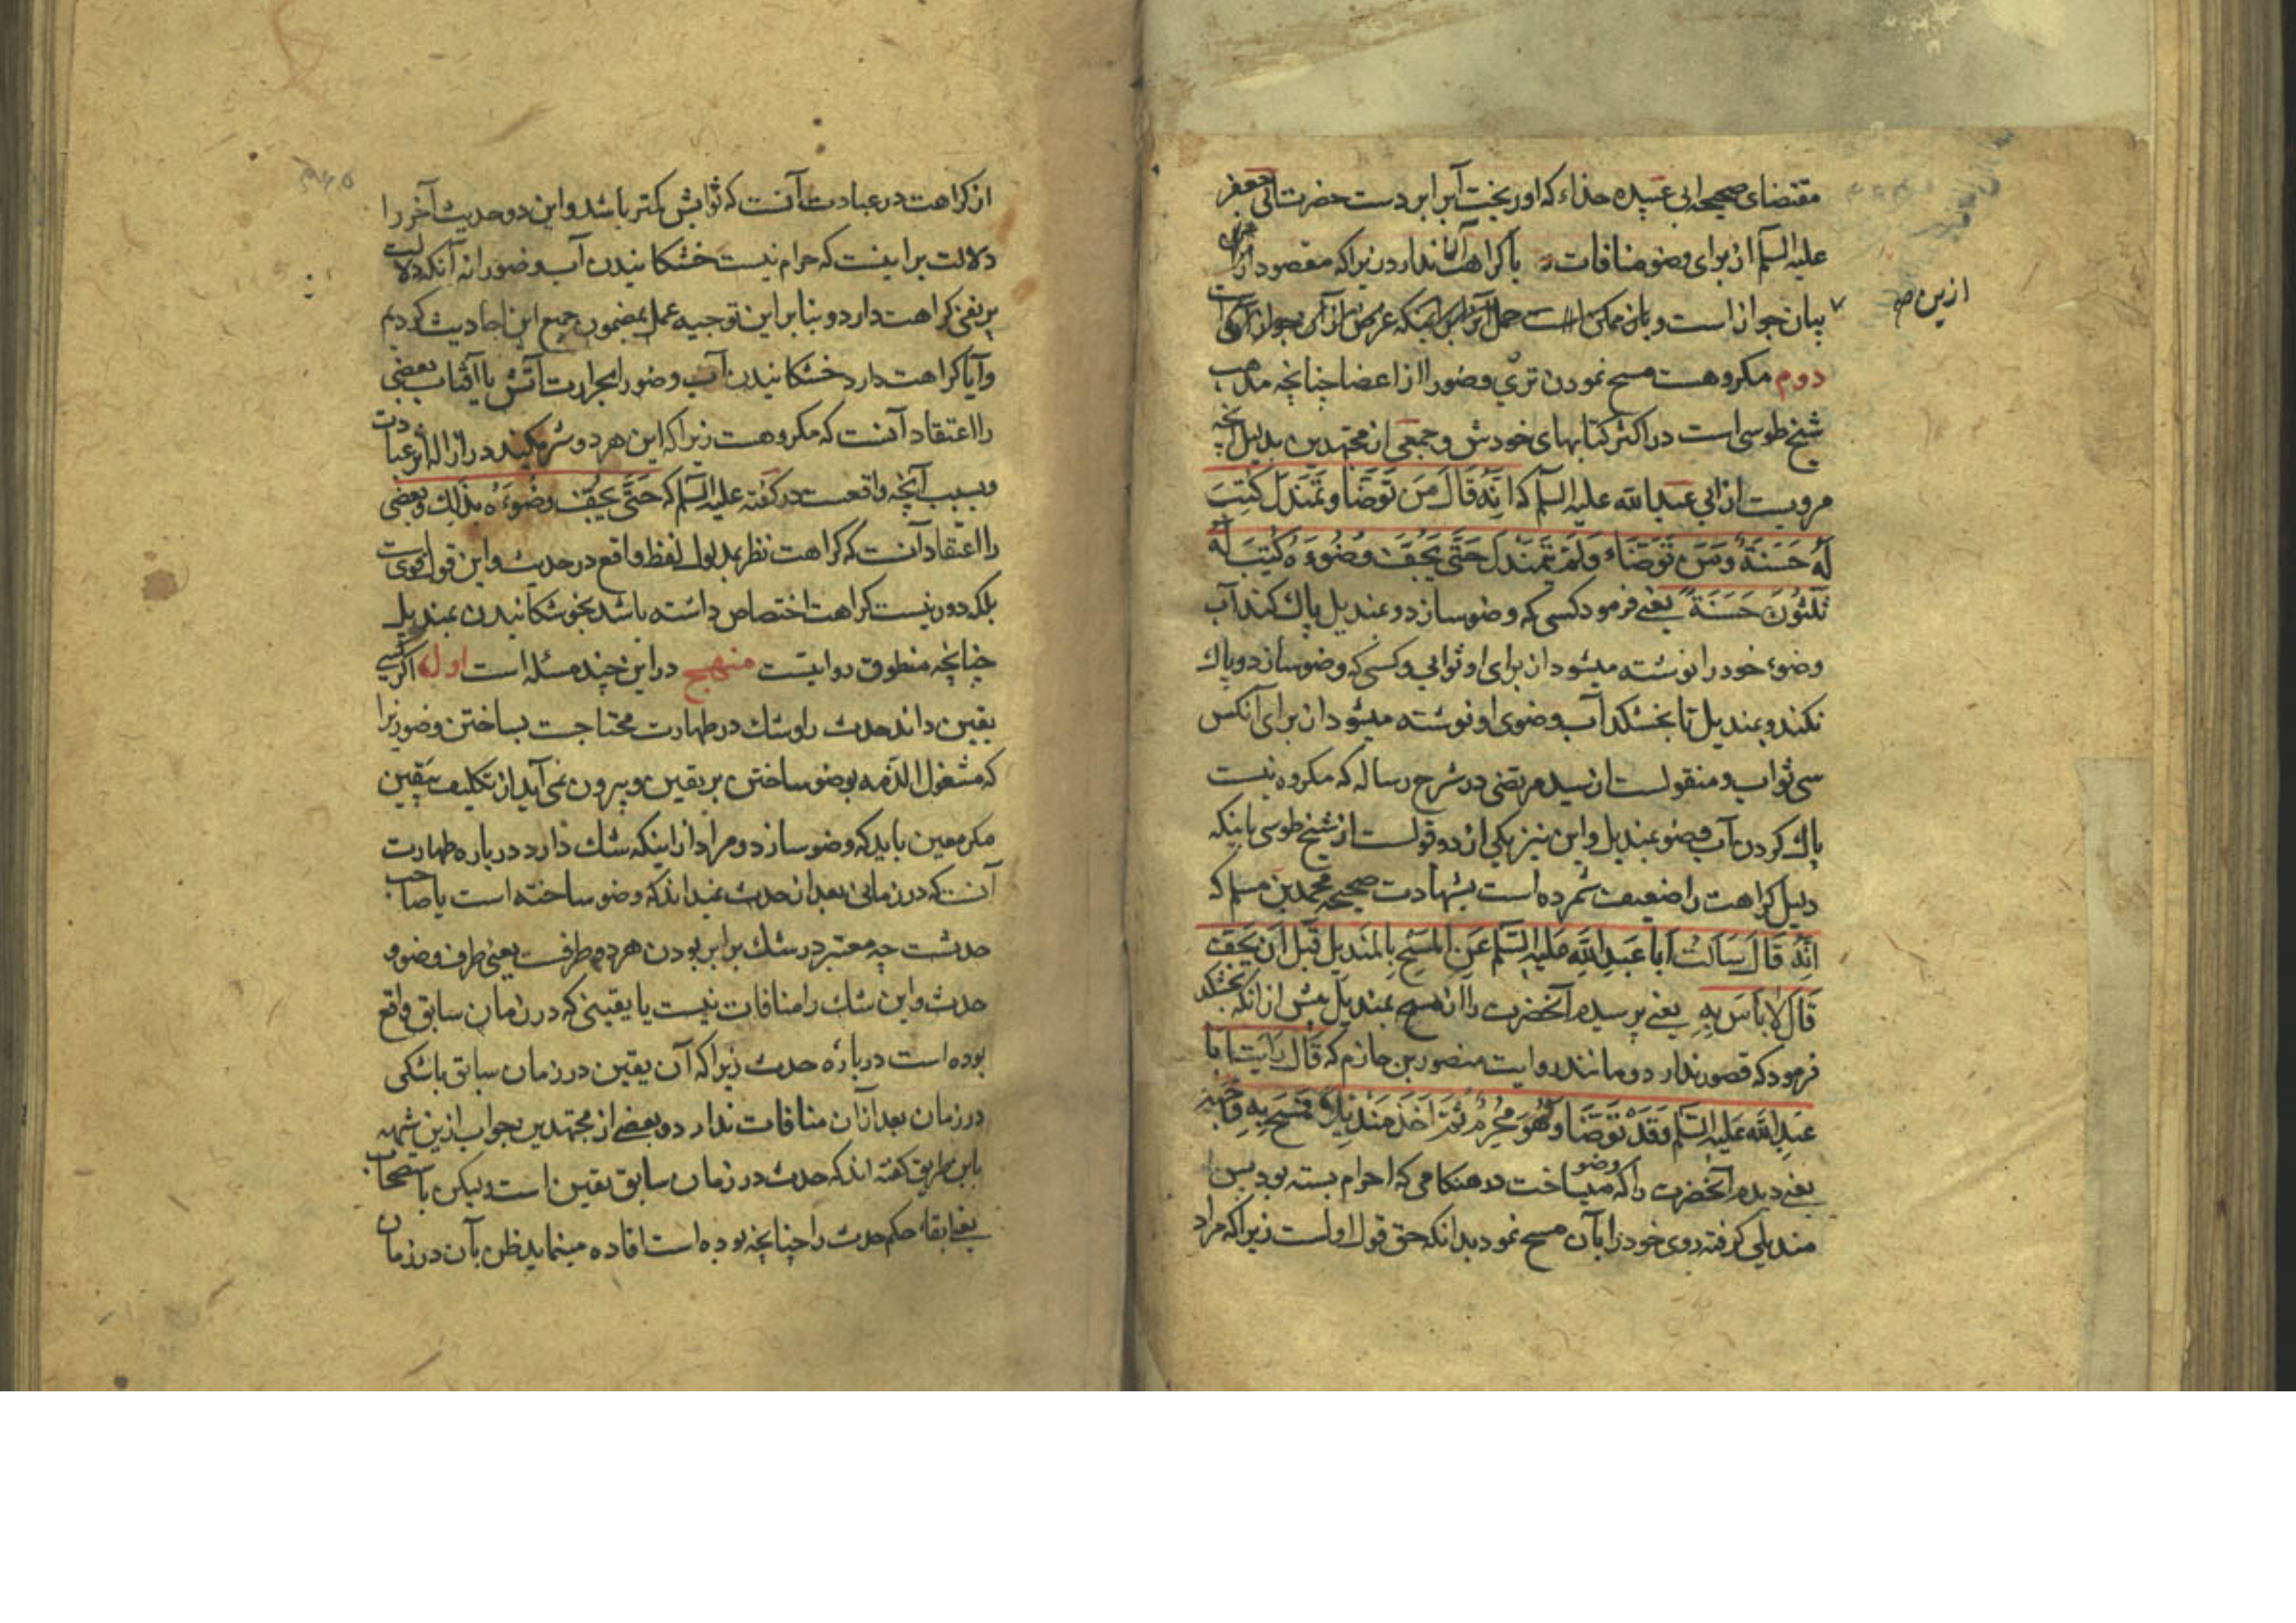 مقتضای صحیحه ابی عبیده حذاء که او ریخت آبرا بر دست حضرت ابی جعفر
علیه السلم از برای وضو منافات با کراهت ندارد زیرا که مقصود از آن
بیان جواز است و باز ممکن است حمل آن بر اینکه غرض از آن جواز
ازین ص
دوم مکروهست مسح نمودن تری وضو را از اعضا چنانچه مذهب
شیخ طوسی است در اکثر کتابهای خودش و جمعی از مجتهدین بدلیل آنچه
مرویست از ابی عبد الله علیه السلم که انَّه قَالَ مَن تَوَضَّأ وتَمَندَلَ کُتِبَ
لَهُ حَسَنَةٌ وَمَن تَوَضَّاءَ وَلَم یَتَمَندَل حَتّی یَجُفَّ وضُوءهُ کُتِبَ لَهُ
ثَلثُونَ حَسَنَةً یعنی فرمود کسی که وضو سازد و بمندیل پاک کند آب
وضوء خود را نوشته میشود از برای او ثوابی و کسی که وضو سازد و پاک
نکند بمندیل تا بخشکد آب وضوی او نوشته میشود از برای آنکس
سی ثواب و منقولست از سید مرتضی در شرح رساله که مکروه نیست
پاک کردن آب وضو بمندیل و این نیز یکی از دو قولست از شیخ طوسی با اینکه
دلیل کراهت را ضعیف شمرده است بشهادت صحیحه محمد بن مسلم که
انَّه قَالَ سَاَلتُ اَبا عَبدِ اللهِ عَلیهِ السَّلم عَنِ المَسحِ بِالمِندِیلِ قَبلَ اَن یَجِفَّ
قَالَ لا بَاسَ بِهِ یعنی پرسیدم آنحضرت را از مسح بمندیل پیش از انکه بخشکد
فرمود که قصور ندارد و مانند روایت منصور بن حازم که قَالَ رَایتُ اَبا
عَبدِ الله عَلیه السَّلم وَقَد تَوَضَّأ وَهُوَ مُحرِمٌ ثُمَّ اَخَذَ مِندِیلًا فَمَسَحَ بِهِ وَجهَهُ
یعنی دیدم آنحضرت را که وضو میساخت در هنکامی که احرام بسته بود پس
مندیلی کرفته روی خود را بآن مسح نمود بدانکه حق قول اولست زیرا که مراد
از کراهت در عبادت آنست که ثوابش کمتر باشد و این دو حدیث آخر را
دلالت بر اینست که حرام نیست خشکانیدن آب وضو را نه آنکه دلالت
بر نفی کراهت دارد و بنا بر این توجیه عمل بمضمون جمیع این احادیث کردیم
و آیا کراهت دارد خشکانیدن آب وضو را بحرارت آتش یا آفتاب بعضی
را اعتقاد آنست که مکروهست زیرا که این هر دو شریکند در ازاله اثر عبادت
و بسبب آنچه واقعست در کفته علیه السلم که حَتَّی یَجُفَّ وضُوءهُ بذلِکَ و بعضی
را اعتقاد آنست که کراهت نظر بمدلول لفظ واقع در حدیث و این قول قویست
بلکه دور نیست کراهت اختصاص داشته باشد بخوشکانیدن بمندیل
چنانچه منطوق روایتست منهج در این چند مسئله است اول اگر کسی
یقین داند حدث را و شک در طهارت محتاجست بساختن وضو زیرا
که مشغول الذمه بوضو ساختن بر یقین و بیرون نمی آید از تکلیف یقین
مکر معین باید که وضو سازد و مراد از اینکه شک دارد در باره طهارت
آنست که در زمانی بعد از حدث نمیداند که وضو ساخته است یا صاحب
حدثست چه معتبر در شک برابر بودن هر دو طرفست یعنی طرف وضو و
حدث و این شک را منافات نیست یا یقینی که در زمان سابق واقع
بوده است درباره حدث زیرا که آن یقین در زمان سابق باشکی
در زمان بعد از آن منافات ندارد و بعضی از مجتهدین بجواب ازین شبهه
باین طریق کفته اند که حدث در زمان سابق یقین است ولیکن باستصحاب
یعنی ابقاء حکم حدث را چنانچه بوده است افاده مینماید ظن بآن در زمان